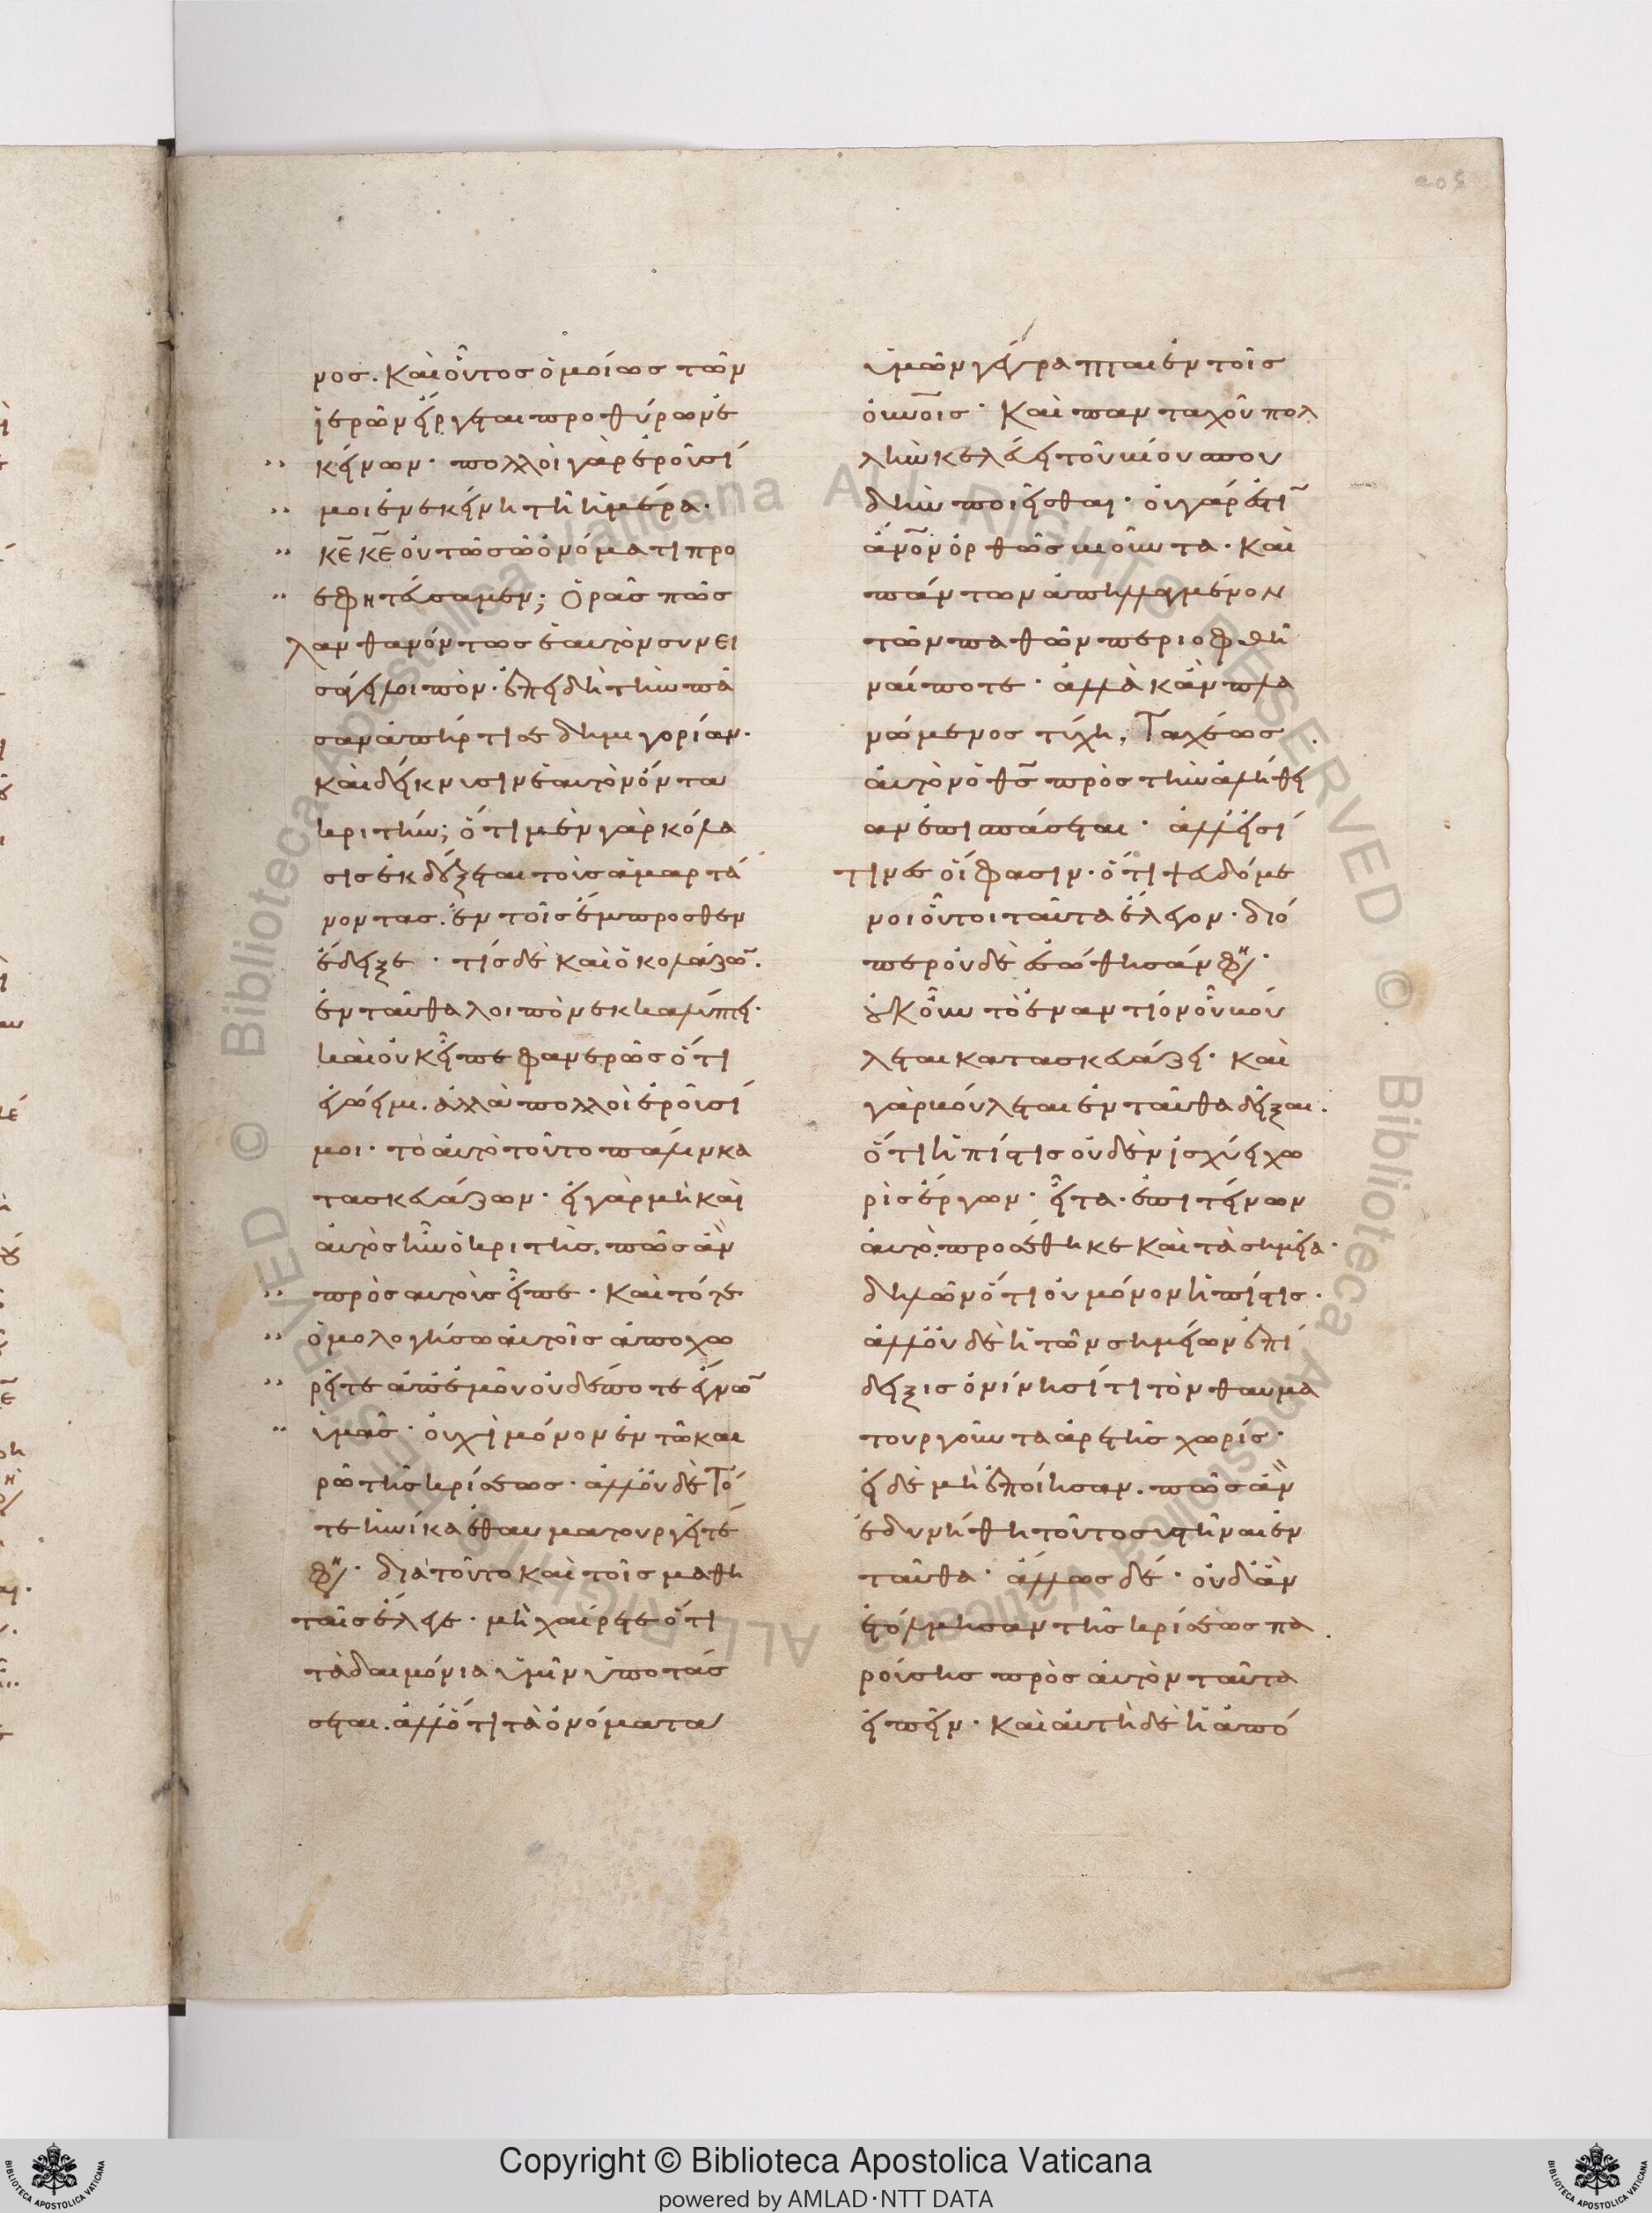 νος. Καὶ οὗτος ὁμοίως τῶν
ἱερῶν εἴργεται προθύρων ἐ
κείνων· πολλοὶ γὰρ ἐροῦσί
μοι ἐν ἐκείνη τῆ ἡμέρα·
κε̅ κε̅ οὐ τῶ σῶ ὀνόματι προ
εφητεύσαμεν; Ὁρᾶς πῶς
λανθανόντως ἑαυτὸν συνει
σάγει λοιπὸν· ἐπειδὴ τὴν πᾶ
σαν ἀπήρτισε δημηγορίαν·
καὶ δείκνυσιν ἑαυτὸν ὄντα
κριτήν; ὅτι μὲν γὰρ κόλα
σις ἐκδέξεται τοὺς ἁμαρτά
νοντας. ἐν τοῖς ἔμπροσθεν
ἔδειξε· τίς δὲ καὶ ὁ κολάζω̅.
ἐνταῦθα λοιπὸν ἐκκαλύπτει·
καὶ οὐκ εἶπε φανερῶς ὅτι
ἐγώ εἰμι. ἀλλὰ πολλοὶ ἐροῦσί
μοι· τὸ αὐτὸ τοῦτο πάλιν κα
τασκευάζων· εἰ γὰρ μὴ καὶ
αὐτὸς ἦν ὁ κριτὴς, πῶς ἂν
πρὸς αὐτοὺς εἶπε· Καὶ τότε
ὁμολογήσω αὐτοῖς ἀποχω
ρεῖτε ἀπ' ἐμοῦ οὐδέποτε ἔγνω̅
ὑμᾶς· οὐχὶ μόνον ἐν τῶ και
ρῶ τῆς κρίσεως· ἀλλ' οὐδὲ Τό
τε ἡνίκα ἐθαυματουργεῖτέ
φη· διὰ τοῦτο καὶ τοῖς μαθη
ταῖς ἔλεγε· μὴ χαίρετε ὅτι
τὰ δαιμόνια ὑμῖν ὑποτάσ
σεται. ἀλλ' ὅτι τὰ ὀνόματα
ὑμῶν γέγραπται ἐν τοῖς
οὐνοῖς· Καὶ πανταχοῦ πολ
λὴν κελεύει τοῦ βίου σπου
δὴν ποιεῖσθαι· οὐ γάρ ἐστι
ἄνο̅ν ὀρθῶς βιοῦντα· Καὶ
πάντων ἀπηλλαγμένον
τῶν παθῶν περιοφθῆ
ναί ποτε· ἀλλὰ κἂν πλα
νώμενος τύχη, Ταχέως
αὐτὸν ὁ θς̅ πρὸς τὴν ἀλήθει
αν ἐπισπάσεται· ἀλλ' εἰσί
τινες οἵ φασιν· ὅτι ψευδόμε
νοι οὗτοι ταῦτα ἔλεγον· διό
περ οὐδὲ ἐσώθησάν φη·
οὐκοῦν τὸ ἐναντίον οὗ βού
λεται κατασκευάζει· Καὶ
γὰρ βούλεται ἐνταῦθα δεῖξαι.
ὅτι ἡ πίστις οὐδὲν ἰσχύει χω
ρὶς ἔργων· εἶτα. ἐπιτείνων
αὐτὸ. προσέθηκε Καὶ τὰ σημεῖα·
δηλῶν ὅτι οὐ μόνον ἡ πίστις.
ἀλλ' οὐδὲ ἡ τῶν σημείων ἐπί
δειξις ὀνίνησί τι τὸν θαυμα
τουργοῦντα ἀρετῆς χωρίς·
εἰ δὲ μὴ ἐποίησαν. πῶς ἂν
ἐδυνήθη τοῦτο συστῆναι ἐν
ταῦθα· ἄλλως δὲ· οὐδ' ἂν
ἐτόλμησαν τῆς κρίσεως πα
ρούσης πρὸς αὐτὸν ταῦτα
εἰπεῖν· Καὶ αὐτὴ δὲ ἡ ἀπό
Copyright © Biblioteca Apostolica Vaticana
powered by AMLAD·NTT DATA